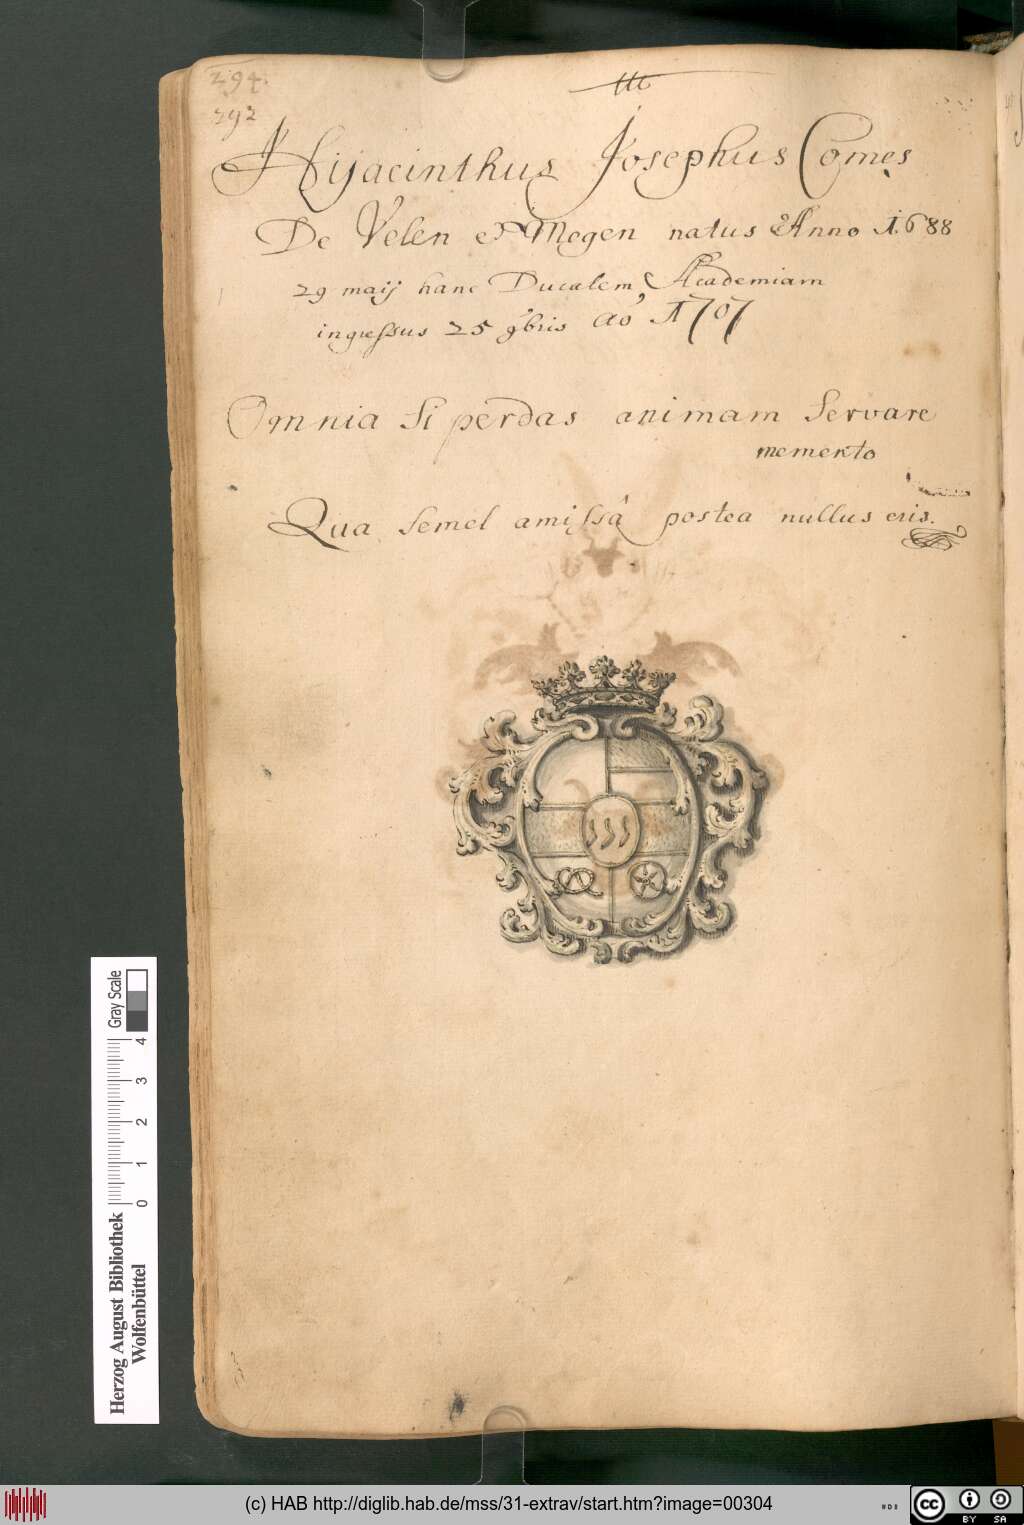 294.
292
Hijacinthus Josephus Comes
De Velen et Megen natus Anno 1688
29 maij hanc Ducalem Academiam
ingressus 25 9bris Ao 1707
Omnia si perdas animam servare
memento
Qua semel amissâ postea nullus eris.
Gray Scale
0 1 2 3 4
Herzog August Bibliothek
Wolfenbüttel
(c) HAB http://diglib.hab.de/mss/31-extrav/start.htm?image=00304
cc BY SA